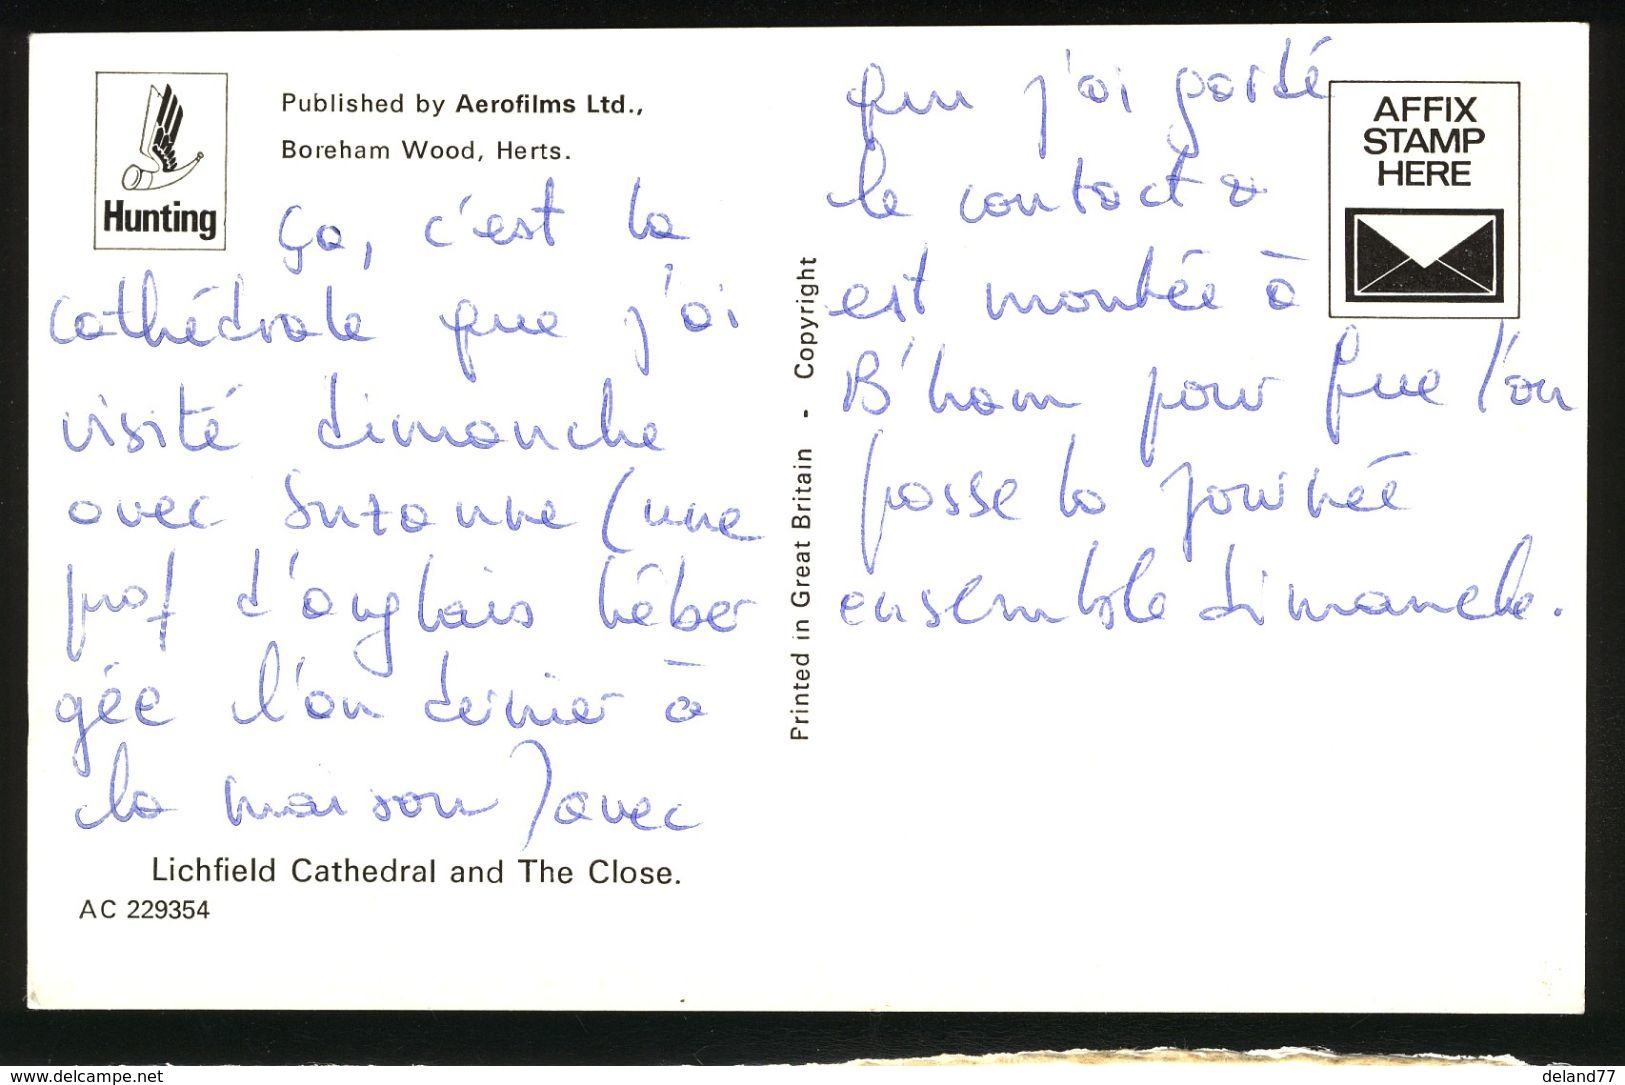 Hunting
Published by Aerofilms Ltd.,
Boreham Wood, Herts.
Ça, c'est la
cathédrale que j'ai
visité dimanche
avec Suzanne (une
prof d'anglais héber
gée l'an dernier à
la maison) avec
Lichfield Cathedral and The Close.
AC 229354
Printed in Great Britain - Copyright
qui j'ai gardé
le contact &
est montée à
B'ham pour que l'on
passe la journée
ensemble dimanche.
AFFIX
STAMP
HERE
www.delcampe.net
deland77